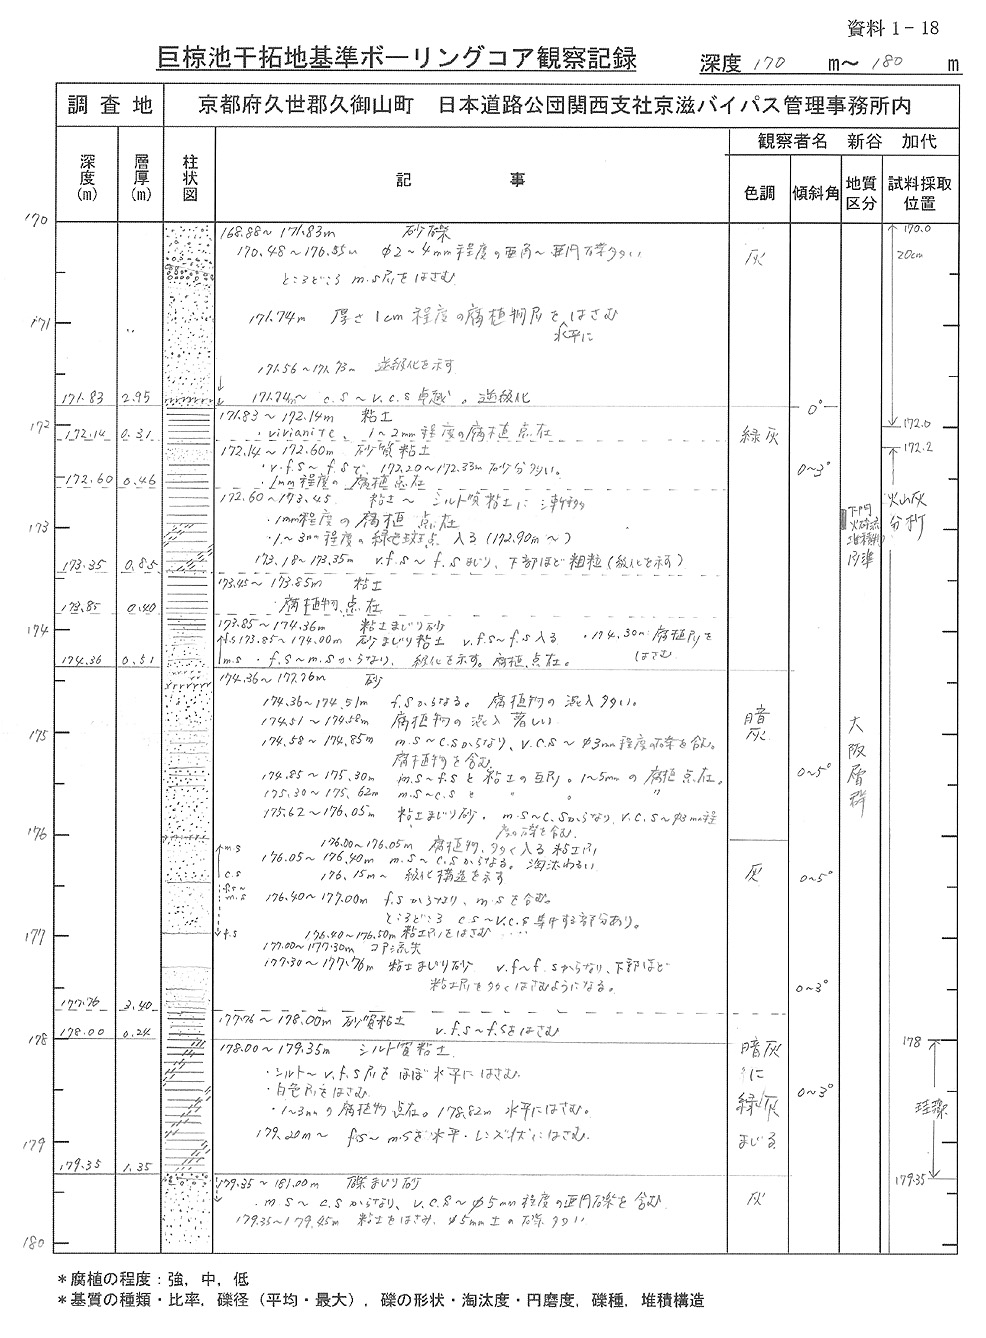 資料1-18
巨椋池干拓地基準ボーリングコア観察記録
深度 170 m~ 180 m
調査地 京都府久世郡久御山町 日本道路公団関西支社京滋バイパス管理事務所内
観察者名 新谷 加代
深度(m) 層厚(m) 柱状図 記事 色調 傾斜角 地質区分 試料採取位置
170
168.88~171.83m 砂礫
170.0
170.48~176.55m φ2~4mm程度の亜角~亜円礫多い
灰
20cm
ところどころ m.s層をはさむ
171
171.74m 厚さ1cm程度の腐植物層をはさむ
水平に
171.56~171.73m 逆級化を示す
171.83 2.95
171.74m~ c.s~v.c.s 卓越。逆級化
0°
171.83~172.14m 粘土
172
172.0
172.14 0.31
・vivianite、1~2mm程度の腐植点在
緑灰
172.14~172.60m 砂質粘土
172.2
・v.f.s~f.sで、172.20~172.33m 砂分多い。
0~3°
172.60 0.46
・1mm程度の腐植点在
172.60~173.45 粘土~シルト質粘土に漸移
火山灰分析
・1mm程度の腐植点在
173
・1~3mm程度の緑色斑点入る(172.90m~)
173.18~173.35m v.f.s~f.sまじり、下部ほど粗粒(級化を示す)
173.35 0.85
173.45~173.85m 粘土
・腐植物点在
173.85 0.40
173.85~174.36m 粘土まじり砂
174
f.s 173.85~174.00m 砂まじり粘土 v.f.s~f.s入る ・174.30m 腐植層をはさむ
m.s ・f.s~m.sからなり、級化を示す。腐植点在。
174.36 0.51
174.36~177.76m 砂
174.36~174.51m f.sからなる。腐植物の混入多い。
174.51~174.58m 腐植物の混入著しい
暗灰
175
174.58~174.85m m.s~c.sからなり、v.c.s~φ3mm程度の礫を含む。
腐植物を含む。
大阪層群
174.85~175.30m m.s~f.sと粘土の互層。1~5mmの腐植点在。
0~5°
175.30~175.62m m.s~c.sと 〃 。 〃
175.62~176.05m 粘土まじり砂。m.s~c.sからなり、v.c.s~φ3mm程
度の礫を含む
176
176.00~176.05m 腐植物、多く入る粘土層
m.s
176.05~176.40m m.s~c.sからなる。淘汰わるい
灰
176.15m~ 級化構造を示す
0~5°
c.s
f.s~m.s
176.40~177.00m f.sからなり、m.sを含む。
ところどころ c.s~v.c.s 集中する部分あり。
177
f.s
176.40~176.50m 粘土層をはさむ
177.00~177.30m コア流失
177.30~177.76m 粘土まじり砂 v.f~f.sからなり、下部ほど
粘土層を多くはさむようになる。
0~3°
177.76 3.40
177.76~178.00m 砂質粘土
178.00 0.24
v.f.s~f.sをはさむ
178
178
178.00~179.35m シルト質粘土
暗灰に緑灰まじる
・シルト~v.f.s層をほぼ水平にはさむ
・白色層をはさむ
0~3°
・1~3mmの腐植物点在。178.82m 水平にはさむ。
珪藻
179.20m~ f.s~m.sを水平・レンズ状にはさむ
179
179.35 1.35
179.35~181.00m 礫まじり砂
179.35
・m.s~c.sからなり、v.c.s~φ5mm程度の亜円礫を含む
灰
179.35~179.45m 粘土をはさみ、φ5mm±の礫多い
180
*腐植の程度:強,中,低
*基質の種類・比率,礫径(平均・最大),礫の形状・淘汰度・円磨度,礫種,堆積構造